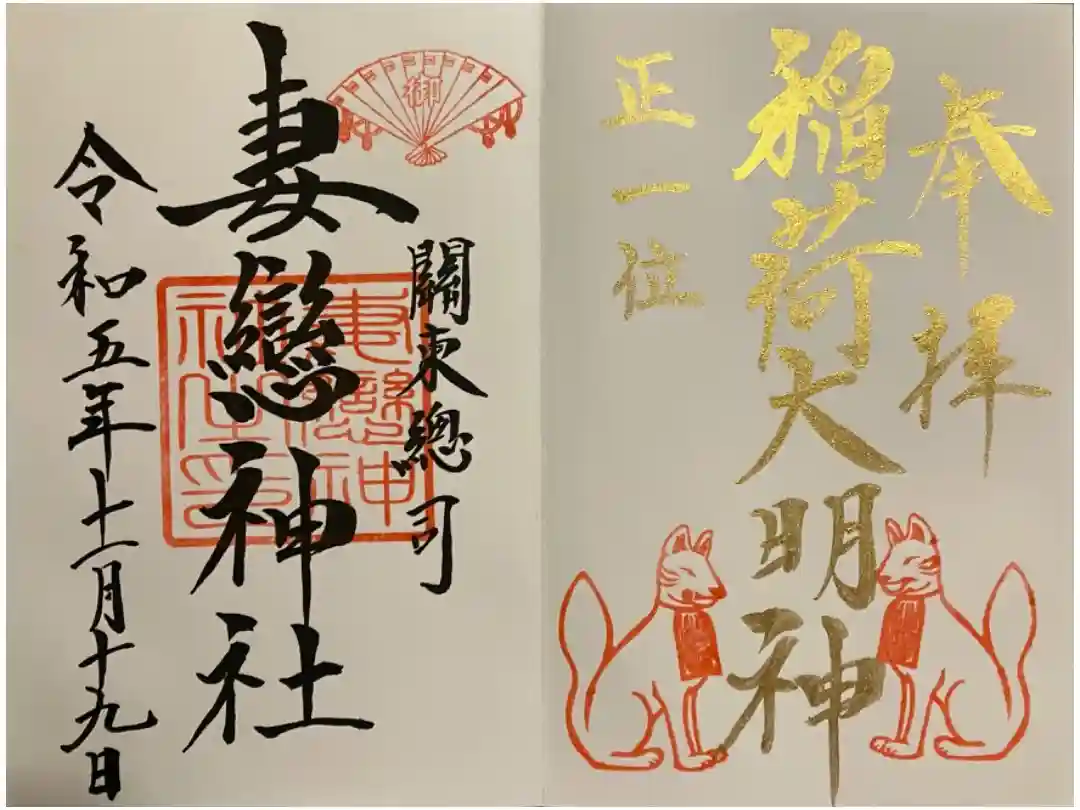 奉拝
稲荷大明神
正一位
御
關東總司
妻戀神社
妻戀神
社之印
令和五年十一月十九日